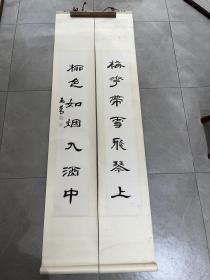 梅花带雪飛琴上
柳色如烟入酒中